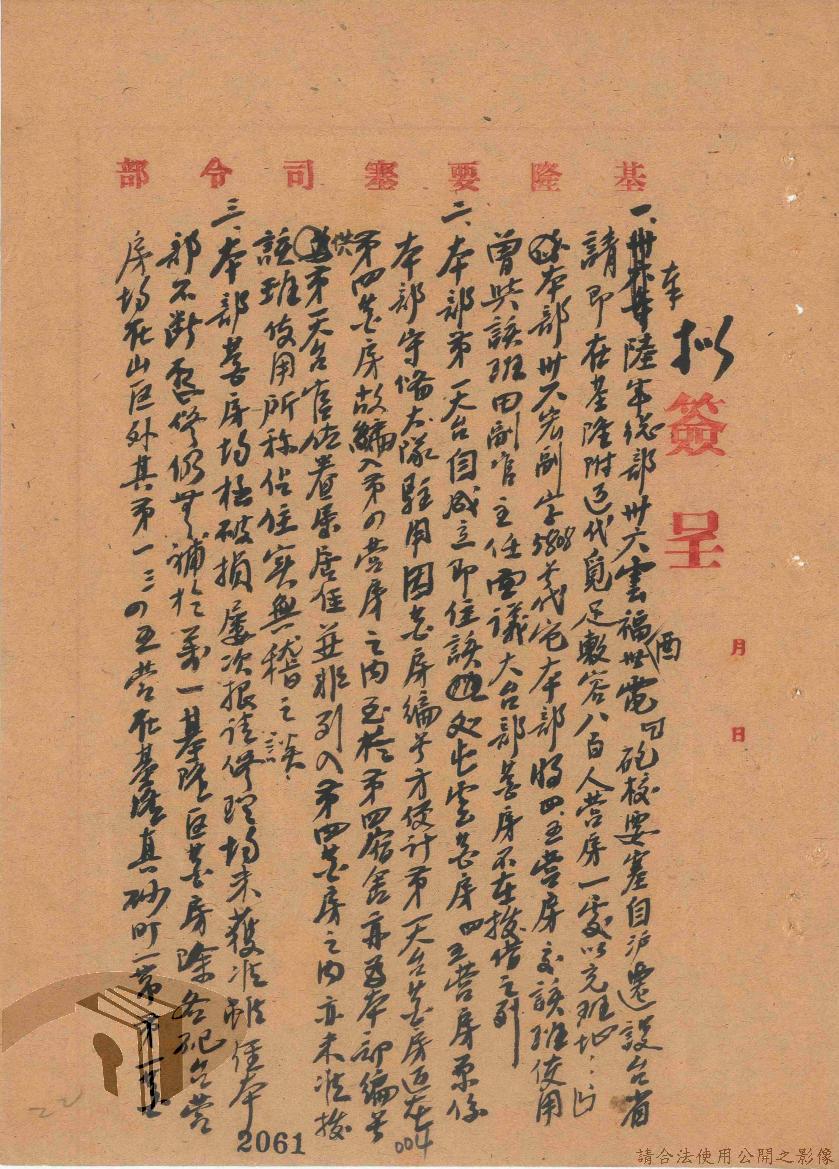 基隆要塞司令部
擬
簽呈
月 日
一、奉陸軍總部卅六雲福世電(酉)砲校要塞自滬遷設台省
請即在基隆附近代覓足敷容八百人營房一處以充班址
本部卅六宏副字5808代電本部將四五營房交該班使用
曾與該班田副官主任面議大台部營房不在撥借之列
二、本部第一大台自成立即住該處 營房四五營房原係
本部守備大隊駐用因營房編號方便計第一大台營房近在
第四營房故編入第四營房之內至於第四宿舍亦為本部編號
供第一大台官佐眷屬居住並非列入第四營房之內亦未准撥
該班使用所稱佔住實無稽之談
三、本部營房均極破損屢次報請修理均未獲准雖經本
部不斷 修仍無補於萬一基隆區營房除各砲台營
房均在山區外其第一三四五營在基隆真砂町一帶第一
004
2061
22
請合法使用公開之影像